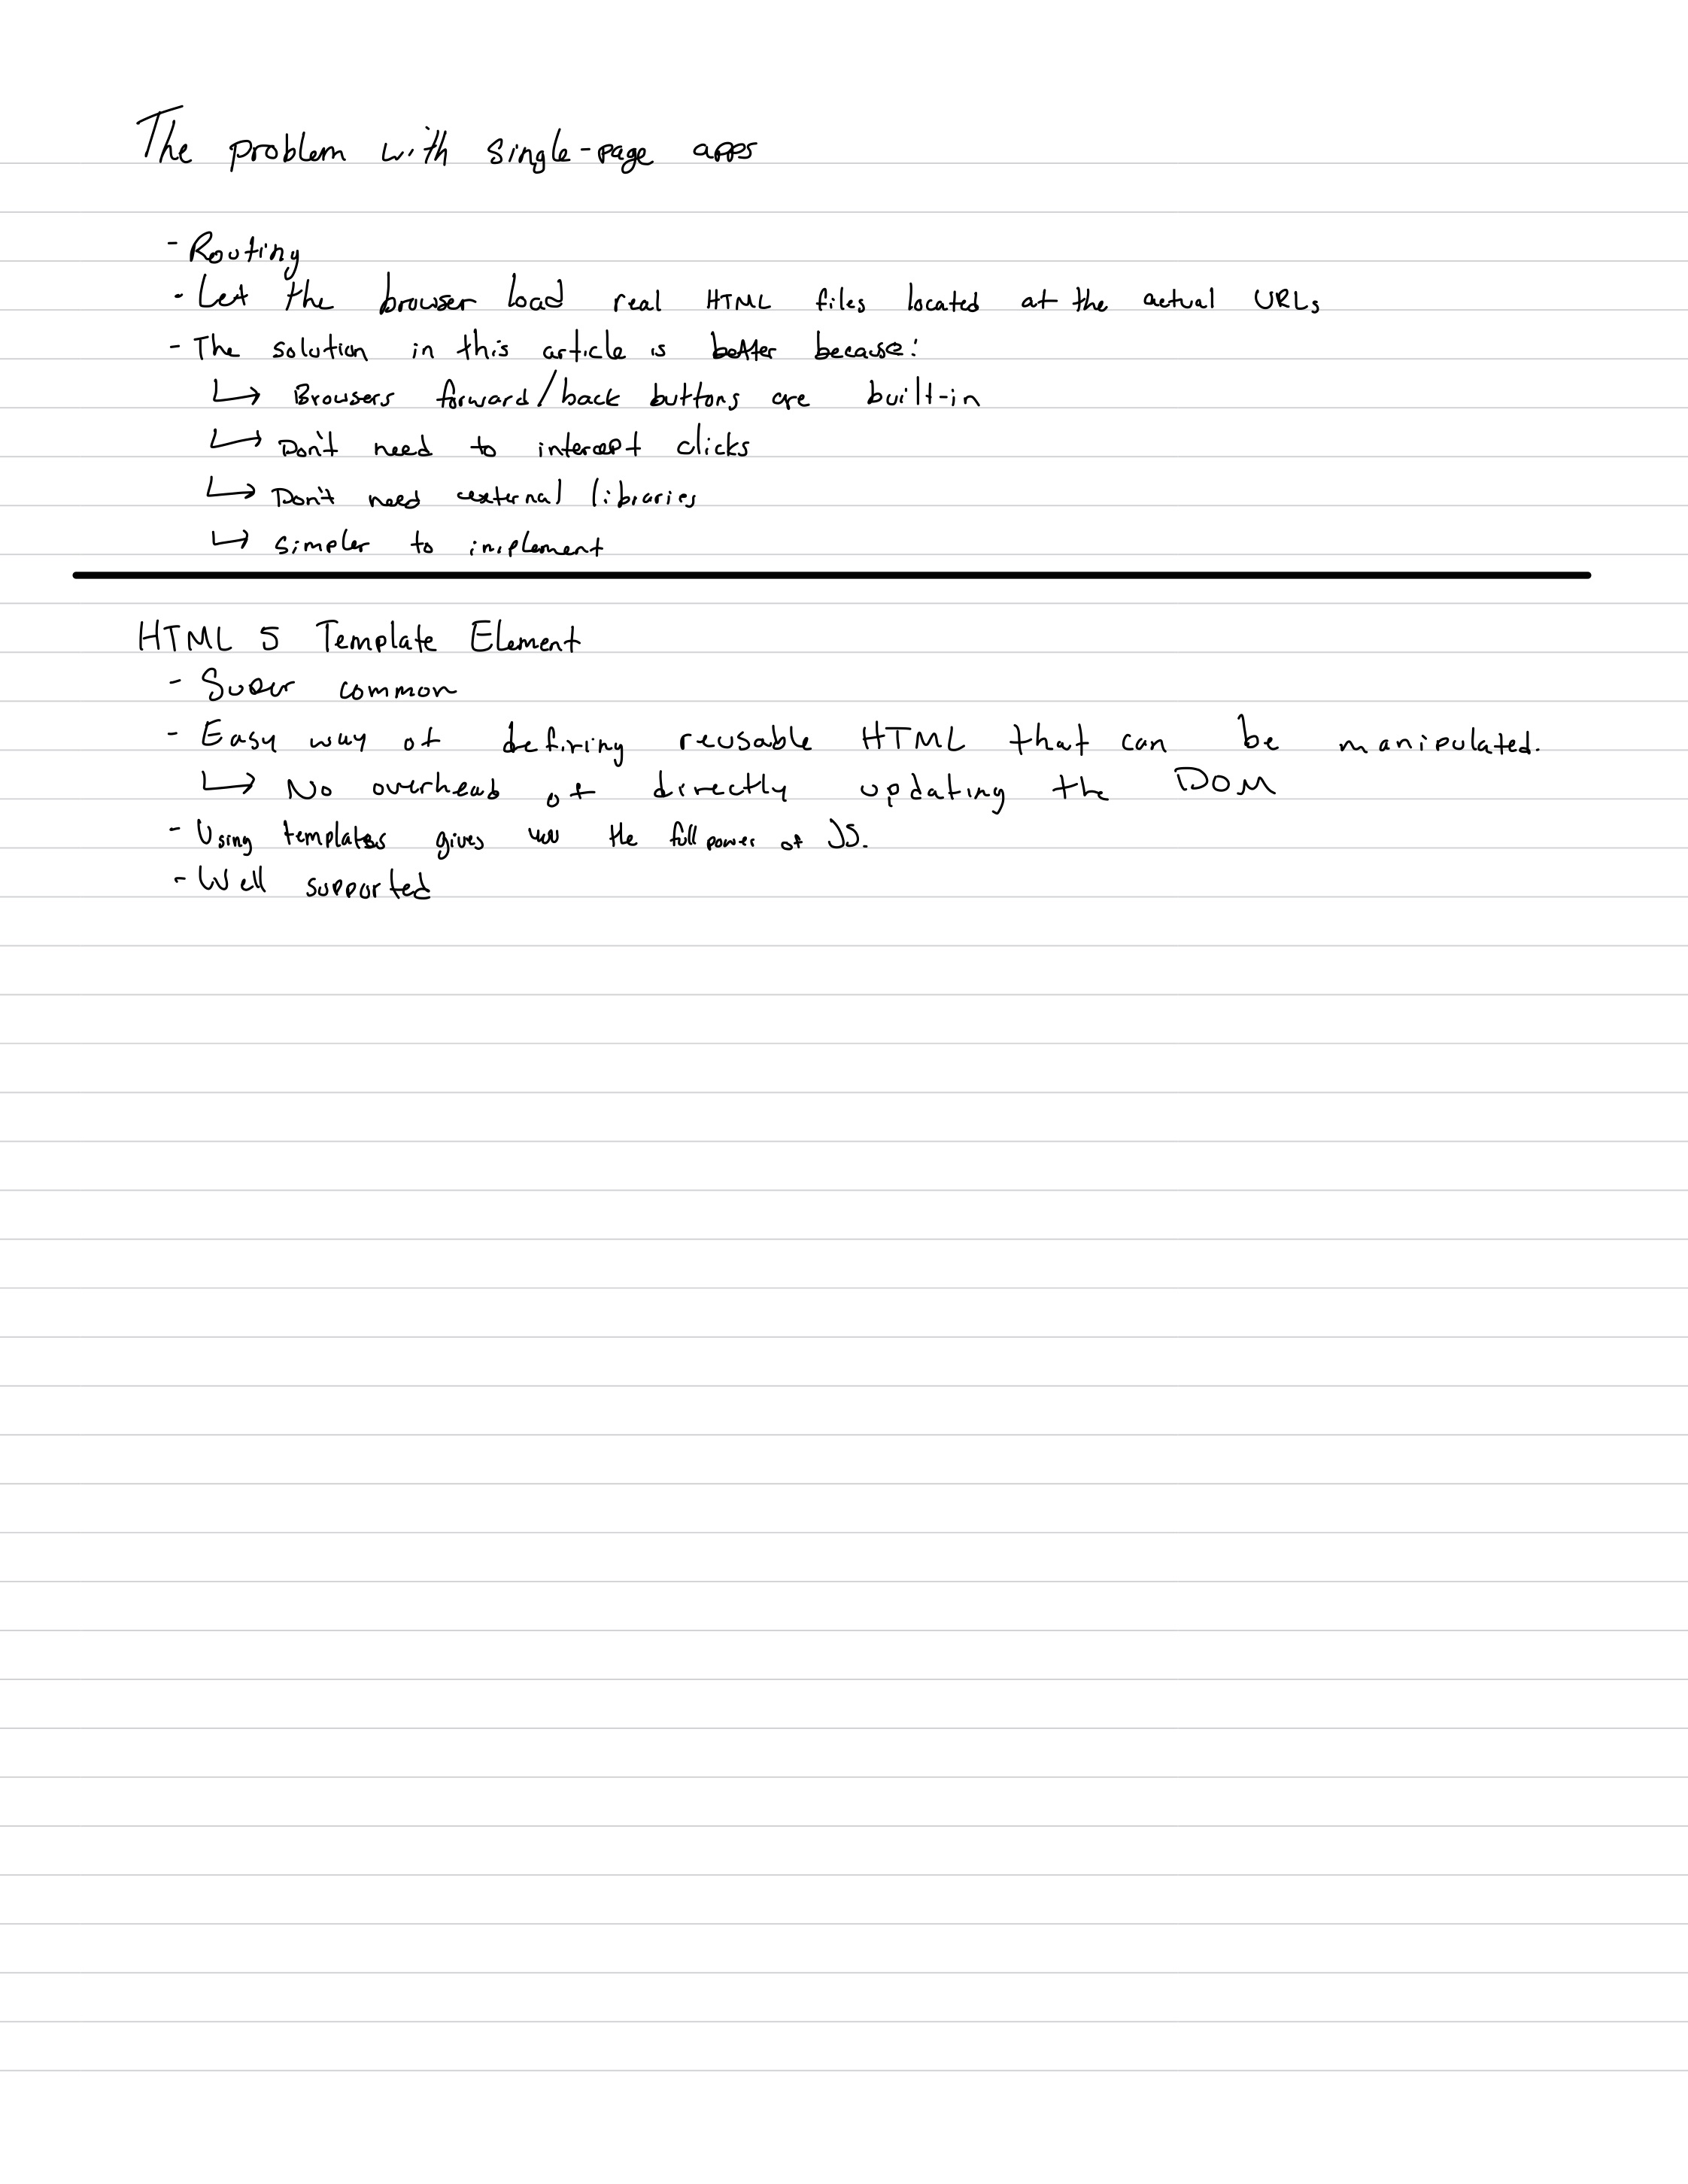 The problem with single-page apps
- Routing
- Let the browser load real HTML files located at the actual URLs
- The solution in this article is better because:
↳ Browsers forward/back buttons are built-in
↳ Don't need to intercept clicks
↳ Don't need external libraries
↳ simpler to implement
HTML 5 Template Element
- Super common
- Easy way of defining reusable HTML that can be manipulated.
↳ No overhead of directly updating the DOM
- Using templates gives the full power of JS.
- Well supported